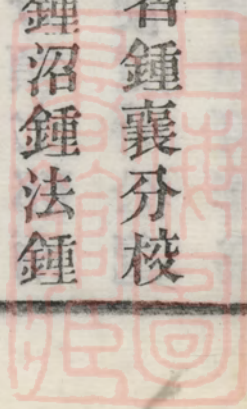 鍾襄分校
鍾沼鍾法鍾